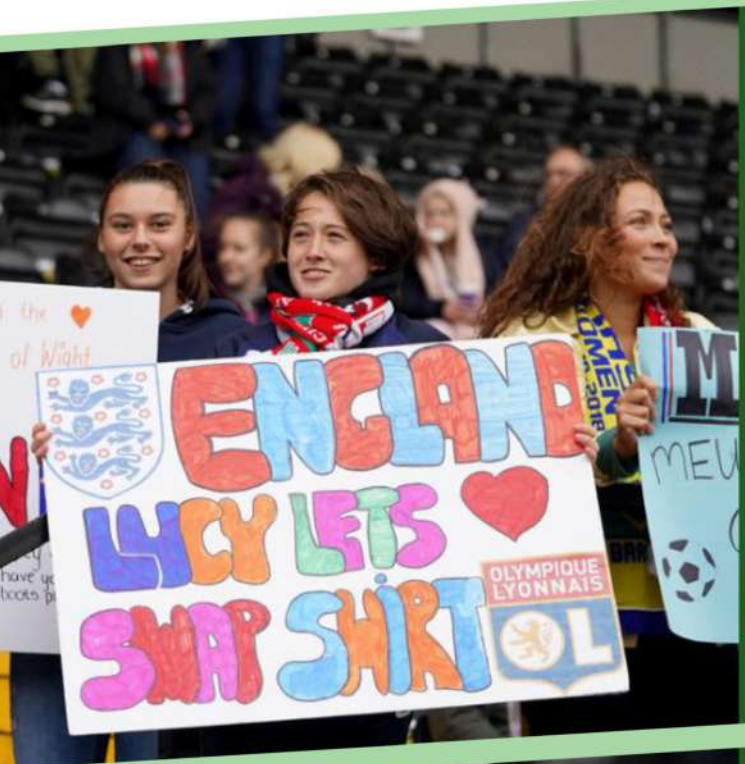 the
of Wight
have
boots
ENGLAND
LUCY LETS
SWAP SHIRT
OLYMPIQUE
LYONNAIS
OL
WOMEN
2018
M
MEW